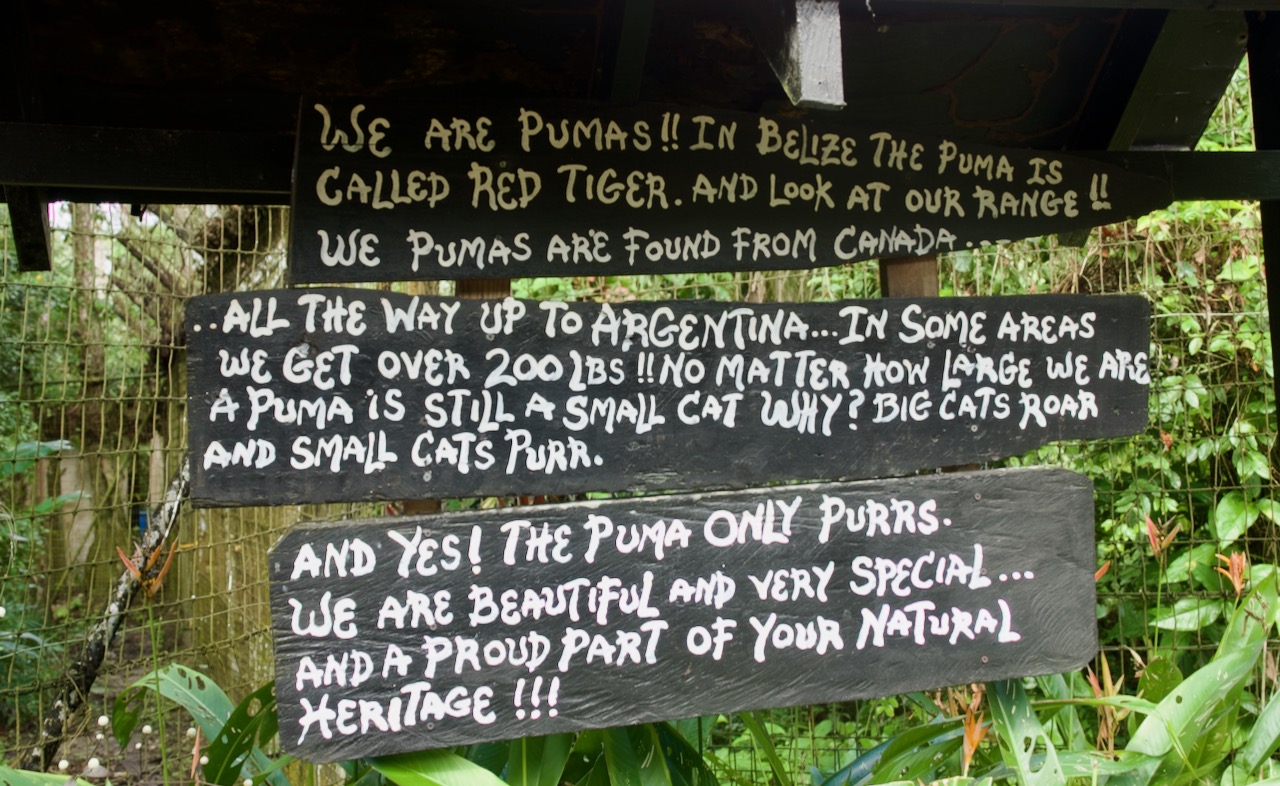 WE ARE PUMAS!! IN BELIZE THE PUMA IS
CALLED RED TIGER. AND LOOK AT OUR RANGE!!
WE PUMAS ARE FOUND FROM CANADA...
..ALL THE WAY UP TO ARGENTINA...IN SOME AREAS
WE GET OVER 200 LBS!! NO MATTER HOW LARGE WE ARE
A PUMA IS STILL A SMALL CAT WHY? BIG CATS ROAR
AND SMALL CATS PURR.
AND YES! THE PUMA ONLY PURRS.
WE ARE BEAUTIFUL AND VERY SPECIAL...
AND A PROUD PART OF YOUR NATURAL
HERITAGE!!!